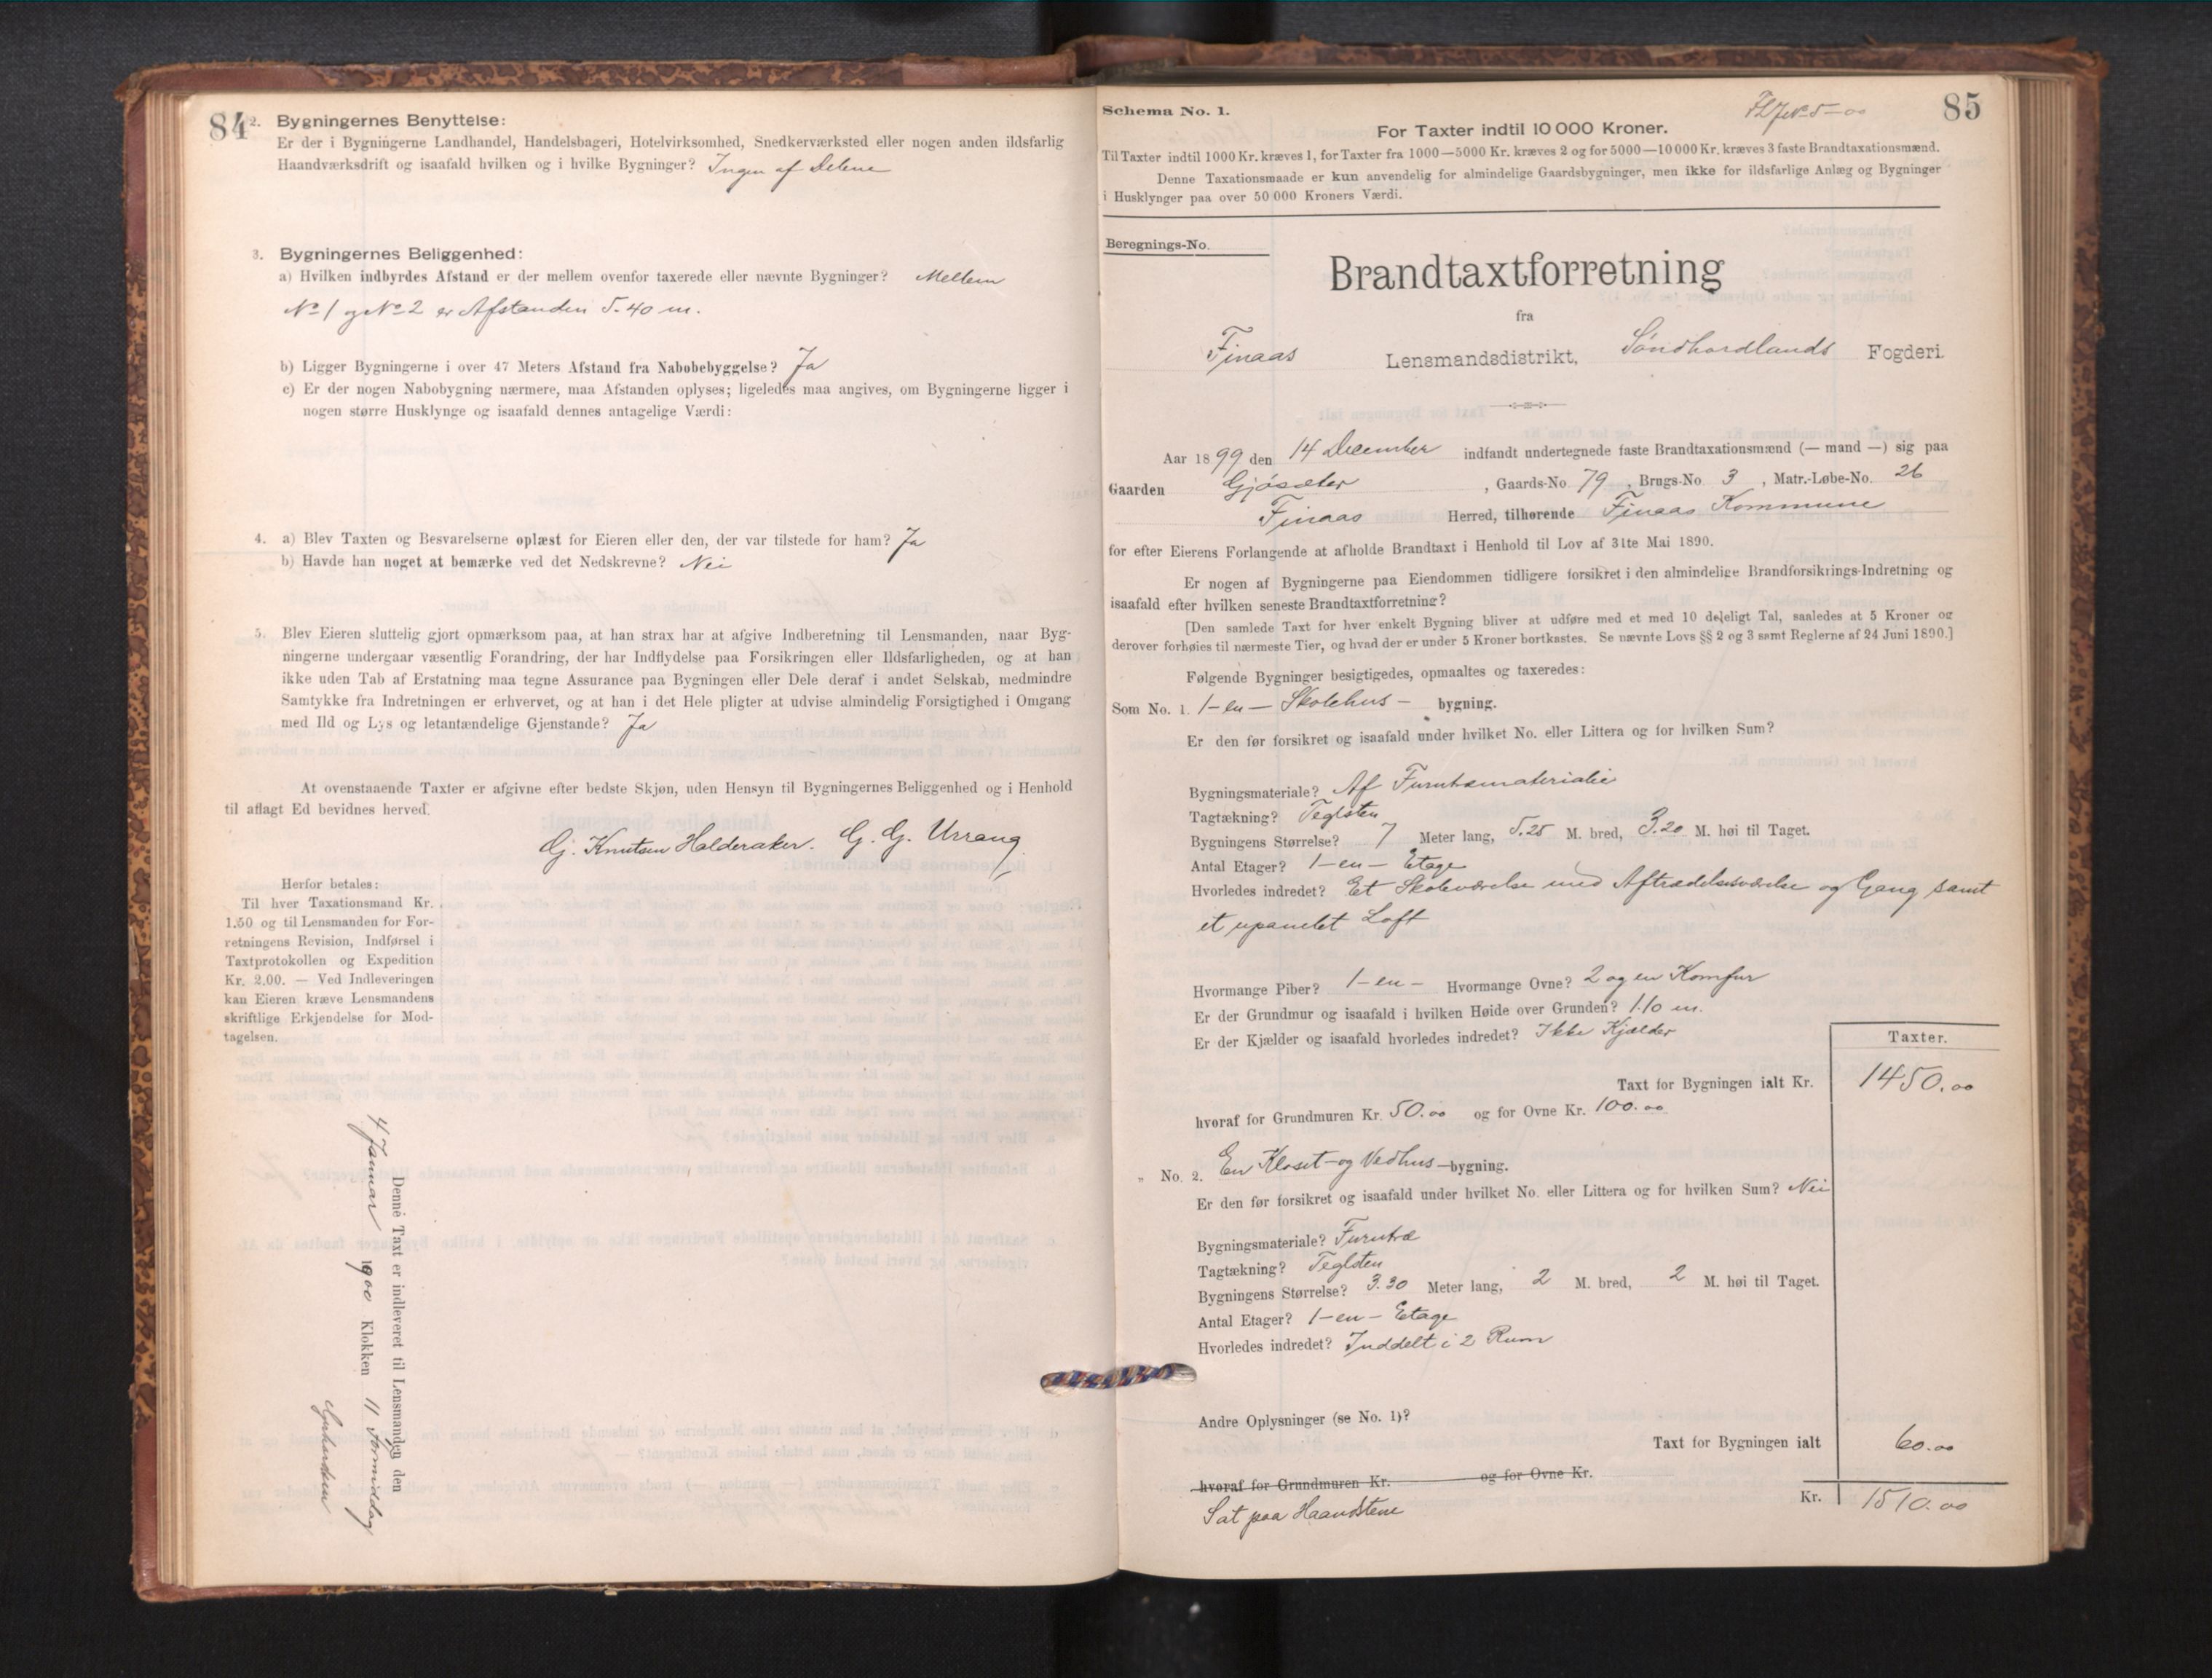 84
2. Bygningernes Benyttelse:
Er der i Bygningerne Landhandel, Handelsbageri, Hotelvirksomhed, Snedkerværksted eller nogen anden ildsfarlig
Haandværksdrift og isaafald hvilken og i hvilke Bygninger? Ingen af Delene
3. Bygningernes Beliggenhed:
a) Hvilken indbyrdes Afstand er der mellem ovenfor taxerede eller nævnte Bygninger? Mellem
No 1 og No 2 er Afstanden 5.40 m.
b) Ligger Bygningerne i over 47 Meters Afstand fra Nabobebyggelse? Ja
c) Er der nogen Nabobygning nærmere, maa Afstanden oplyses; ligeledes maa angives, om Bygningerne ligger i
nogen større Husklynge og isaafald dennes antagelige Værdi:
4. a) Blev Taxten og Besvarelserne oplæst for Eieren eller den, der var tilstede for ham? Ja
b) Havde han noget at bemærke ved det Nedskrevne? Nei
5. Blev Eieren sluttelig gjort opmærksom paa, at han strax har at afgive Indberetning til Lensmanden, naar Byg-
ningerne undergaar væsentlig Forandring, der har Indflydelse paa Forsikringen eller Ildsfarligheden, og at han
ikke uden Tab af Erstatning maa tegne Assurance paa Bygningen eller Dele deraf i andet Selskab, medmindre
Samtykke fra Indretningen er erhvervet, og at han i det Hele pligter at udvise almindelig Forsigtighed i Omgang
med Ild og Lys og letantændelige Gjenstande? Ja
At ovenstaaende Taxter er afgivne efter bedste Skjøn, uden Hensyn til Bygningernes Beliggenhed og i Henhold
til aflagt Ed bevidnes herved.
G. Knutsen Halderaker. G. G. Urrang
Herfor betales:
Til hver Taxationsmand Kr.
1.50 og til Lensmanden for For-
retningens Revision, Indførsel i
Taxtprotokollen og Expedition
Kr. 2.00. — Ved Indleveringen
kan Eieren kræve Lensmandens
skriftlige Erkjendelse for Mod-
tagelsen.
Denne Taxt er indleveret til Lensmanden den
4 Januar 1900 Klokken 11 Formiddag
85
Schema No. 1.
For Taxter indtil 10 000 Kroner.
Til Taxter indtil 1000 Kr. kræves 1, for Taxter fra 1000—5000 Kr. kræves 2 og for 5000—10000 Kr. kræves 3 faste Brandtaxationsmænd.
Denne Taxationsmaade er kun anvendelig for almindelige Gaardsbygninger, men ikke for ildsfarlige Anlæg og Bygninger
i Husklynger paa over 50 000 Kroners Værdi.
Beregnings-No.
Brandtaxtforretning
fra
Finaas Lensmandsdistrikt, Søndhordlands Fogderi.
Aar 1899 den 14 December indfandt undertegnede faste Brandtaxationsmænd (— mand —) sig paa
Gaarden Gjøsæter, Gaards-No. 79, Brugs-No. 3, Matr.-Løbe-No. 26
Finaas Herred, tilhørende Finaas Kommune
for efter Eierens Forlangende at afholde Brandtaxt i Henhold til Lov af 31te Mai 1890.
Er nogen af Bygningerne paa Eiendommen tidligere forsikret i den almindelige Brandforsikrings-Indretning og
isaafald efter hvilken seneste Brandtaxtforretning?
[Den samlede Taxt for hver enkelt Bygning bliver at udføre med et med 10 deleligt Tal, saaledes at 5 Kroner og
derover forhøies til nærmeste Tier, og hvad der er under 5 Kroner bortkastes. Se nævnte Lovs §§ 2 og 3 samt Reglerne af 24 Juni 1890.]
Følgende Bygninger besigtigedes, opmaaltes og taxeredes:
Som No. 1. 1-en- Skolehus- bygning.
Er den før forsikret og isaafald under hvilket No. eller Littera og for hvilken Sum?
Bygningsmateriale? Af Furutæmaterialie
Tagtækning? Teglsten
Bygningens Størrelse? 7 Meter lang, 5.25 M. bred, 3.20 M. høi til Taget.
Antal Etager? 1-en- Etage
Hvorledes indredet? Et Skoleværelse med Aftrædelsesværelse og Gang samt
et upanelet Loft
Hvormange Piber? 1-en- Hvormange Ovne? 2 og en Komfur
Er der Grundmur og isaafald i hvilken Høide over Grunden? 1.10 m.
Er der Kjælder og isaafald hvorledes indredet? Ikke Kjælder
Taxter.
Taxt for Bygningen ialt Kr. 1450.00
hvoraf for Grundmuren Kr. 50.00 og for Ovne Kr. 100.00
„ No. 2. En Kloset- og Vedhus-bygning.
Er den før forsikret og isaafald under hvilket No. eller Littera og for hvilken Sum? Nei
Bygningsmateriale? Furutræ
Tagtækning? Teglsten
Bygningens Størrelse? 3.30 Meter lang, 2 M. bred, 2 M. høi til Taget.
Antal Etager? 1-en- Etage
Hvorledes indredet? Inddelt i 2 Rum
Andre Oplysninger (se No. 1)?
Taxt for Bygningen ialt 60.00
hvoraf for Grundmuren Kr. og for Ovne Kr.
Sat paa Haandstene
Kr. 1510.00